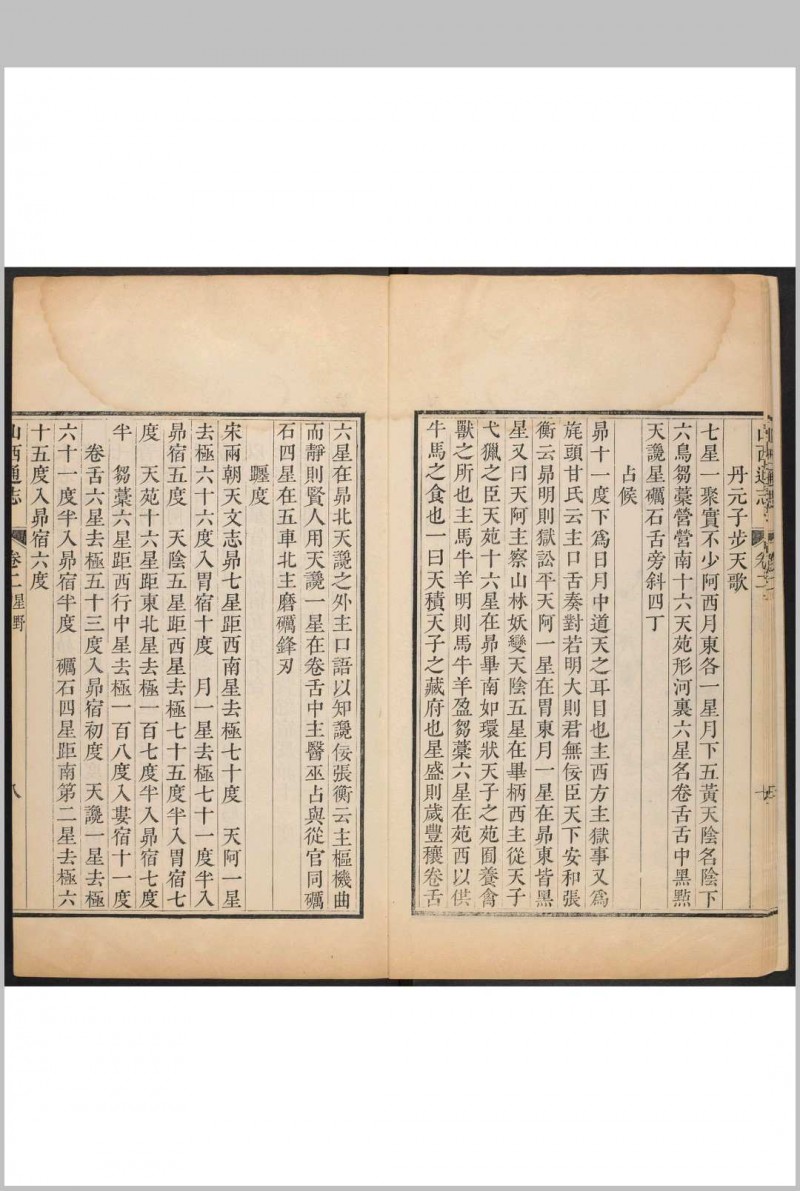 山西通志
丹元子步天歌
七星一聚實不少阿西月東各一星月下五黃天陰名陰下
六烏芻藁營營南十六天苑形河裏六星名卷舌舌中黑㸃
天讒星礪石舌旁斜四丁
占候
昴十一度下爲日月中道天之耳目也主西方主獄事又爲
旄頭甘氏云主口舌奏對若明大則君無佞臣天下安和張
衡云昴明則獄訟平天阿一星在胃東月一星在昴東皆黑
星又曰天阿主察山林妖變天陰五星在畢柄西主從天子
弋獵之臣天苑十六星在昴畢南如環狀天子之苑囿養禽
獸之所也主馬牛羊明則馬牛羊盈芻藁六星在苑西以供
牛馬之食也一曰天積天子之藏府也星盛則歲豐穰卷舌
六星在昴北天讒之外主口語以知讒佞張衡云主樞機曲
而靜則賢人用天讒一星在卷舌中主醫巫占與從官同礪
石四星在五車北主磨礪鋒刃
躔度
宋兩朝天文志昴七星距西南星去極七十度　天阿一星
去極六十六度入胃宿十度　月一星去極七十一度半入
昴宿五度　天陰五星距西星去極七十五度半入胃宿七
度　天苑十六星距東北星去極一百七度半入昴宿七度
半　芻藁六星距西行中星去極一百八度入婁宿十一度
卷舌六星去極五十三度入昴宿初度　天讒一星去極
六十一度半入昴宿半度　礪石四星距南第二星去極六
十五度入昴宿六度
山西通志　卷二　星野　八